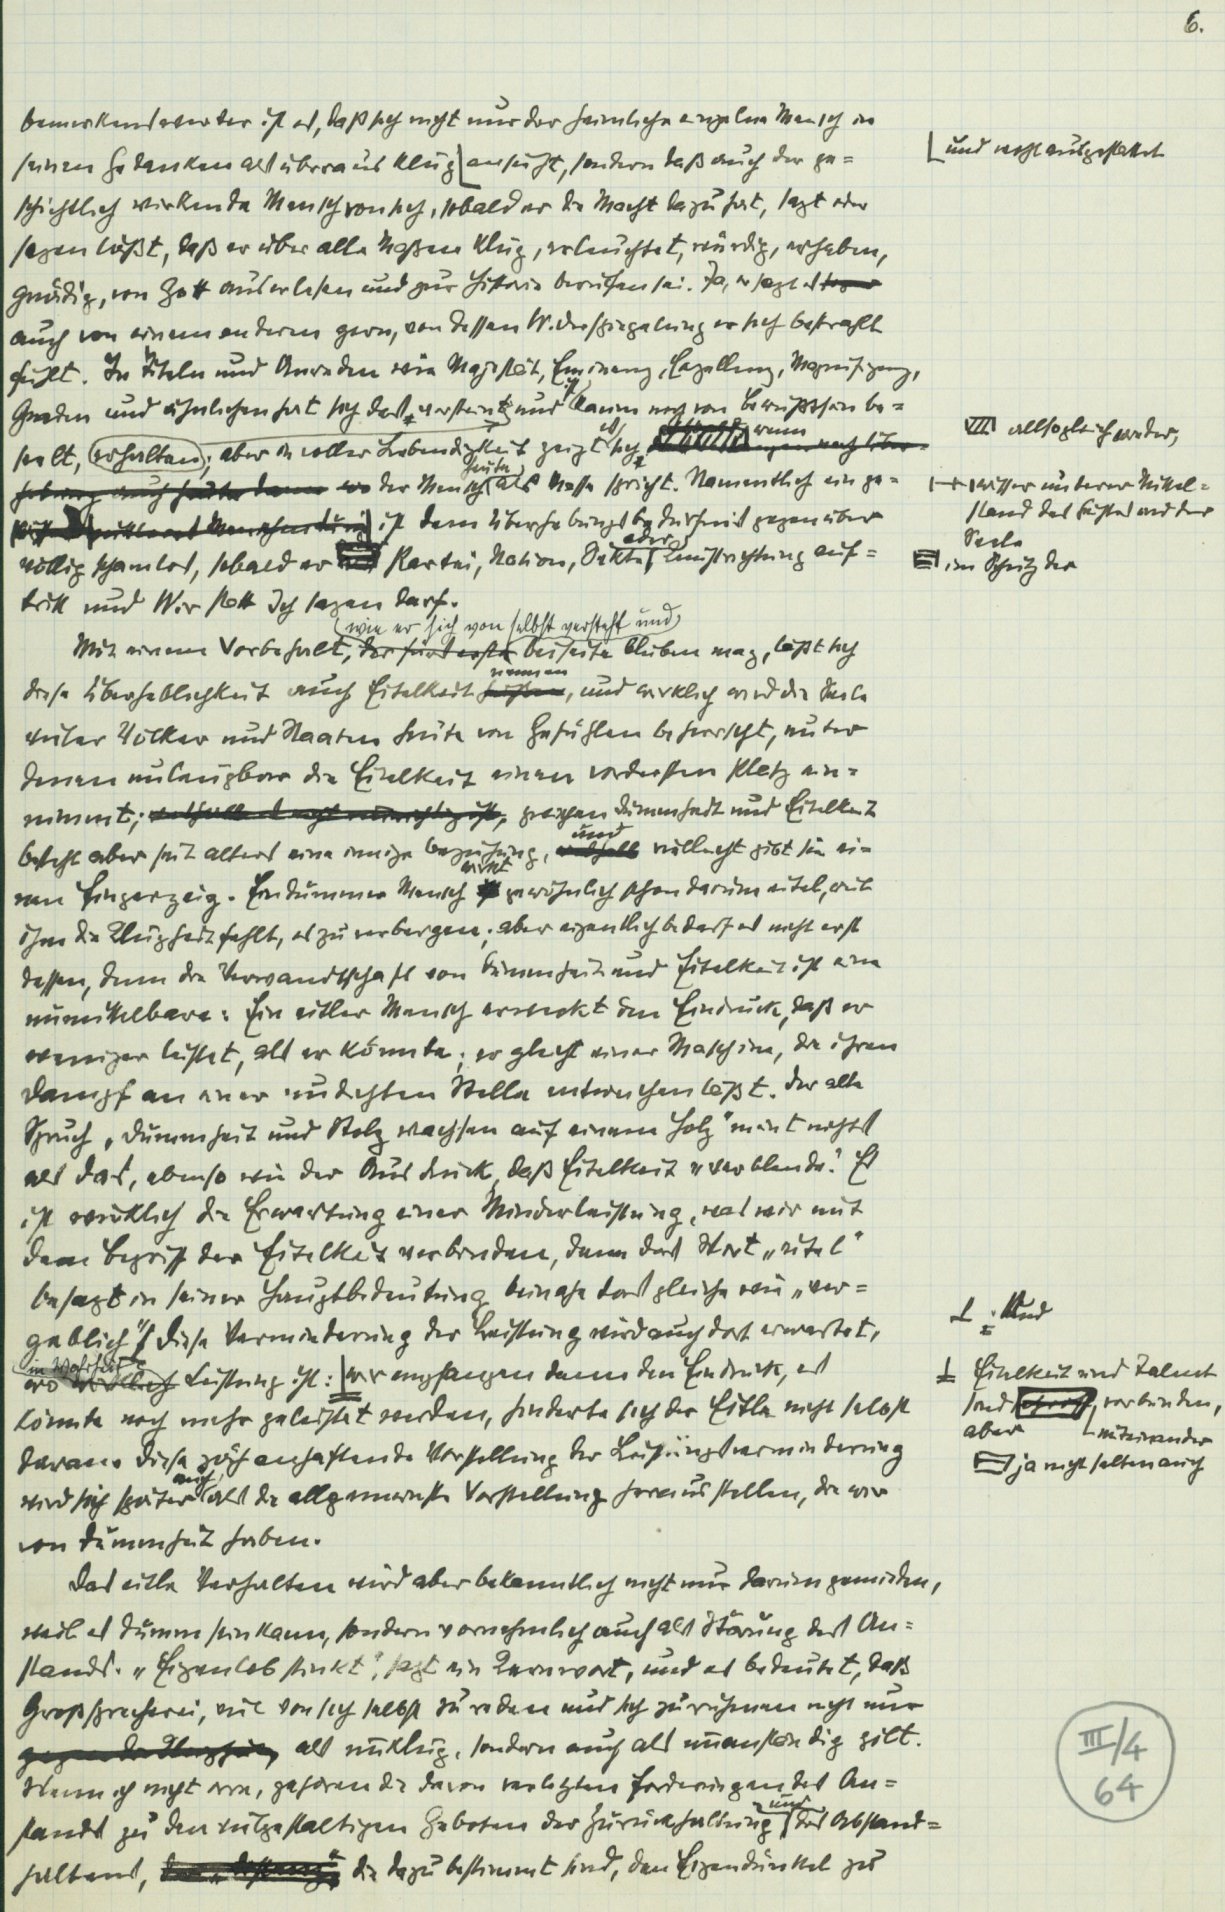 6.
bemerkenswerter ist es, daß sich nicht nur der heimliche einzelne Mensch in
seinen Gedanken als überaus klug ansieht, sondern daß auch der ge=
und wohl ausgestattet
schichtlich wirkende Mensch von sich, sobald er die Macht dazu hat, sagt oder
sagen läßt, daß er über alle Maßen klug, erleuchtet, würdig, erhaben,
gnädig, von Gott auserlesen und zur Historie berufen sei. Ja, er sagt es
auch von einem anderen gern, von dessen Widerspiegelung er sich bestrahlt
fühlt. In Titeln und Anreden wie Majestät, Eminenz, Exzellenz, Magnifizenz,
Gnaden und ähnlichen hat sich das versteint und kaum noch von Bewußtsein be=
seelt, erhalten; aber in voller Lebendigkeit zeigt es sich wenn
allsogleich wieder,
der Mensch heute als Masse spricht. Namentlich ein ge=
wisser unterer Mittel=
stand des Geistes und der
Seele
ist dem Überhebungsbedürfnis gegenüber
völlig schamlos, sobald er Partei, Nation, Sekte oder Kunstrichtung auf=
im Schutz der
tritt und Wir statt Ich sagen darf.
wie er sich von selbst versteht und
Mit einem Vorbehalt, der fürs erste beiseite bleiben mag, läßt sich
nennen
diese Überheblichkeit auch Eitelkeit heißen, und wirklich wird die Seele
vieler Völker und Staaten heute von Gefühlen beherrscht, unter
denen unleugbar die Eitelkeit einen vordersten Platz ein=
nimmt; zwischen Dummheit und Eitelkeit
und
besteht aber seit alters eine innige Beziehung, weshalb vielleicht gibt sie ei=
wirkt
nen Fingerzeig. Ein dummer Mensch gewöhnlich schon darum eitel, weil
ihm die Klugheit fehlt, es zu verbergen; aber eigentlich bedarf es nicht erst
dessen, denn die Verwandtschaft von Dummheit und Eitelkeit ist eine
unmittelbare: Ein eitler Mensch erweckt den Eindruck, daß er
weniger leistet, als er könnte; er gleicht einer Maschine, die ihren
Dampf an einer undichten Stelle entweichen läßt. Der alte
Spruch „Dummheit und Stolz wachsen auf einem Holz" meint nichts
als das, ebenso wie der Ausdruck, daß Eitelkeit „verblende". Es
ist wirklich die Erwartung einer Minderleistung, was wir mit
dem Begriff der Eitelkeit verbinden, denn das Wort „eitel"
besagt in seiner Hauptbedeutung beinahe das gleiche wie „ver=
geblich". Diese Verminderung der Leistung wird auch dort erwartet,
: Und
in Wahrheit
wo wirklich Leistung ist: wir empfangen dann den Eindruck, es
Eitelkeit und Talent
sind verbunden,
aber miteinander
ja nicht selten auch
könnte noch mehr geleistet werden, hinderte sich der Eitle nicht selbst
daran. Diese zäh anhaftende Vorstellung der Leistungsverminderung
auch
wird sich später als die allgemeinste Vorstellung herausstellen, die wir
von Dummheit haben.
Das eitle Verhalten wird aber bekanntlich nicht nur darum gemieden,
weil es dumm sein kann, sondern vornehmlich auch als Störung des An=
stands. „Eigenlob stinkt", sagt ein Kernwort, und es bedeutet, daß
Großsprecherei, viel von sich selbst zu reden und sich zu rühmen nicht nur
als unklug, sondern auch als unanständig gilt.
Wenn ich nicht irre, gehören die davon verletzten Forderungen des An=
stands zu den vielgestaltigen Geboten der Zurückhaltung und des Abstand=
haltens, die dazu bestimmt sind, den Eigendünkel zu
III/4
64